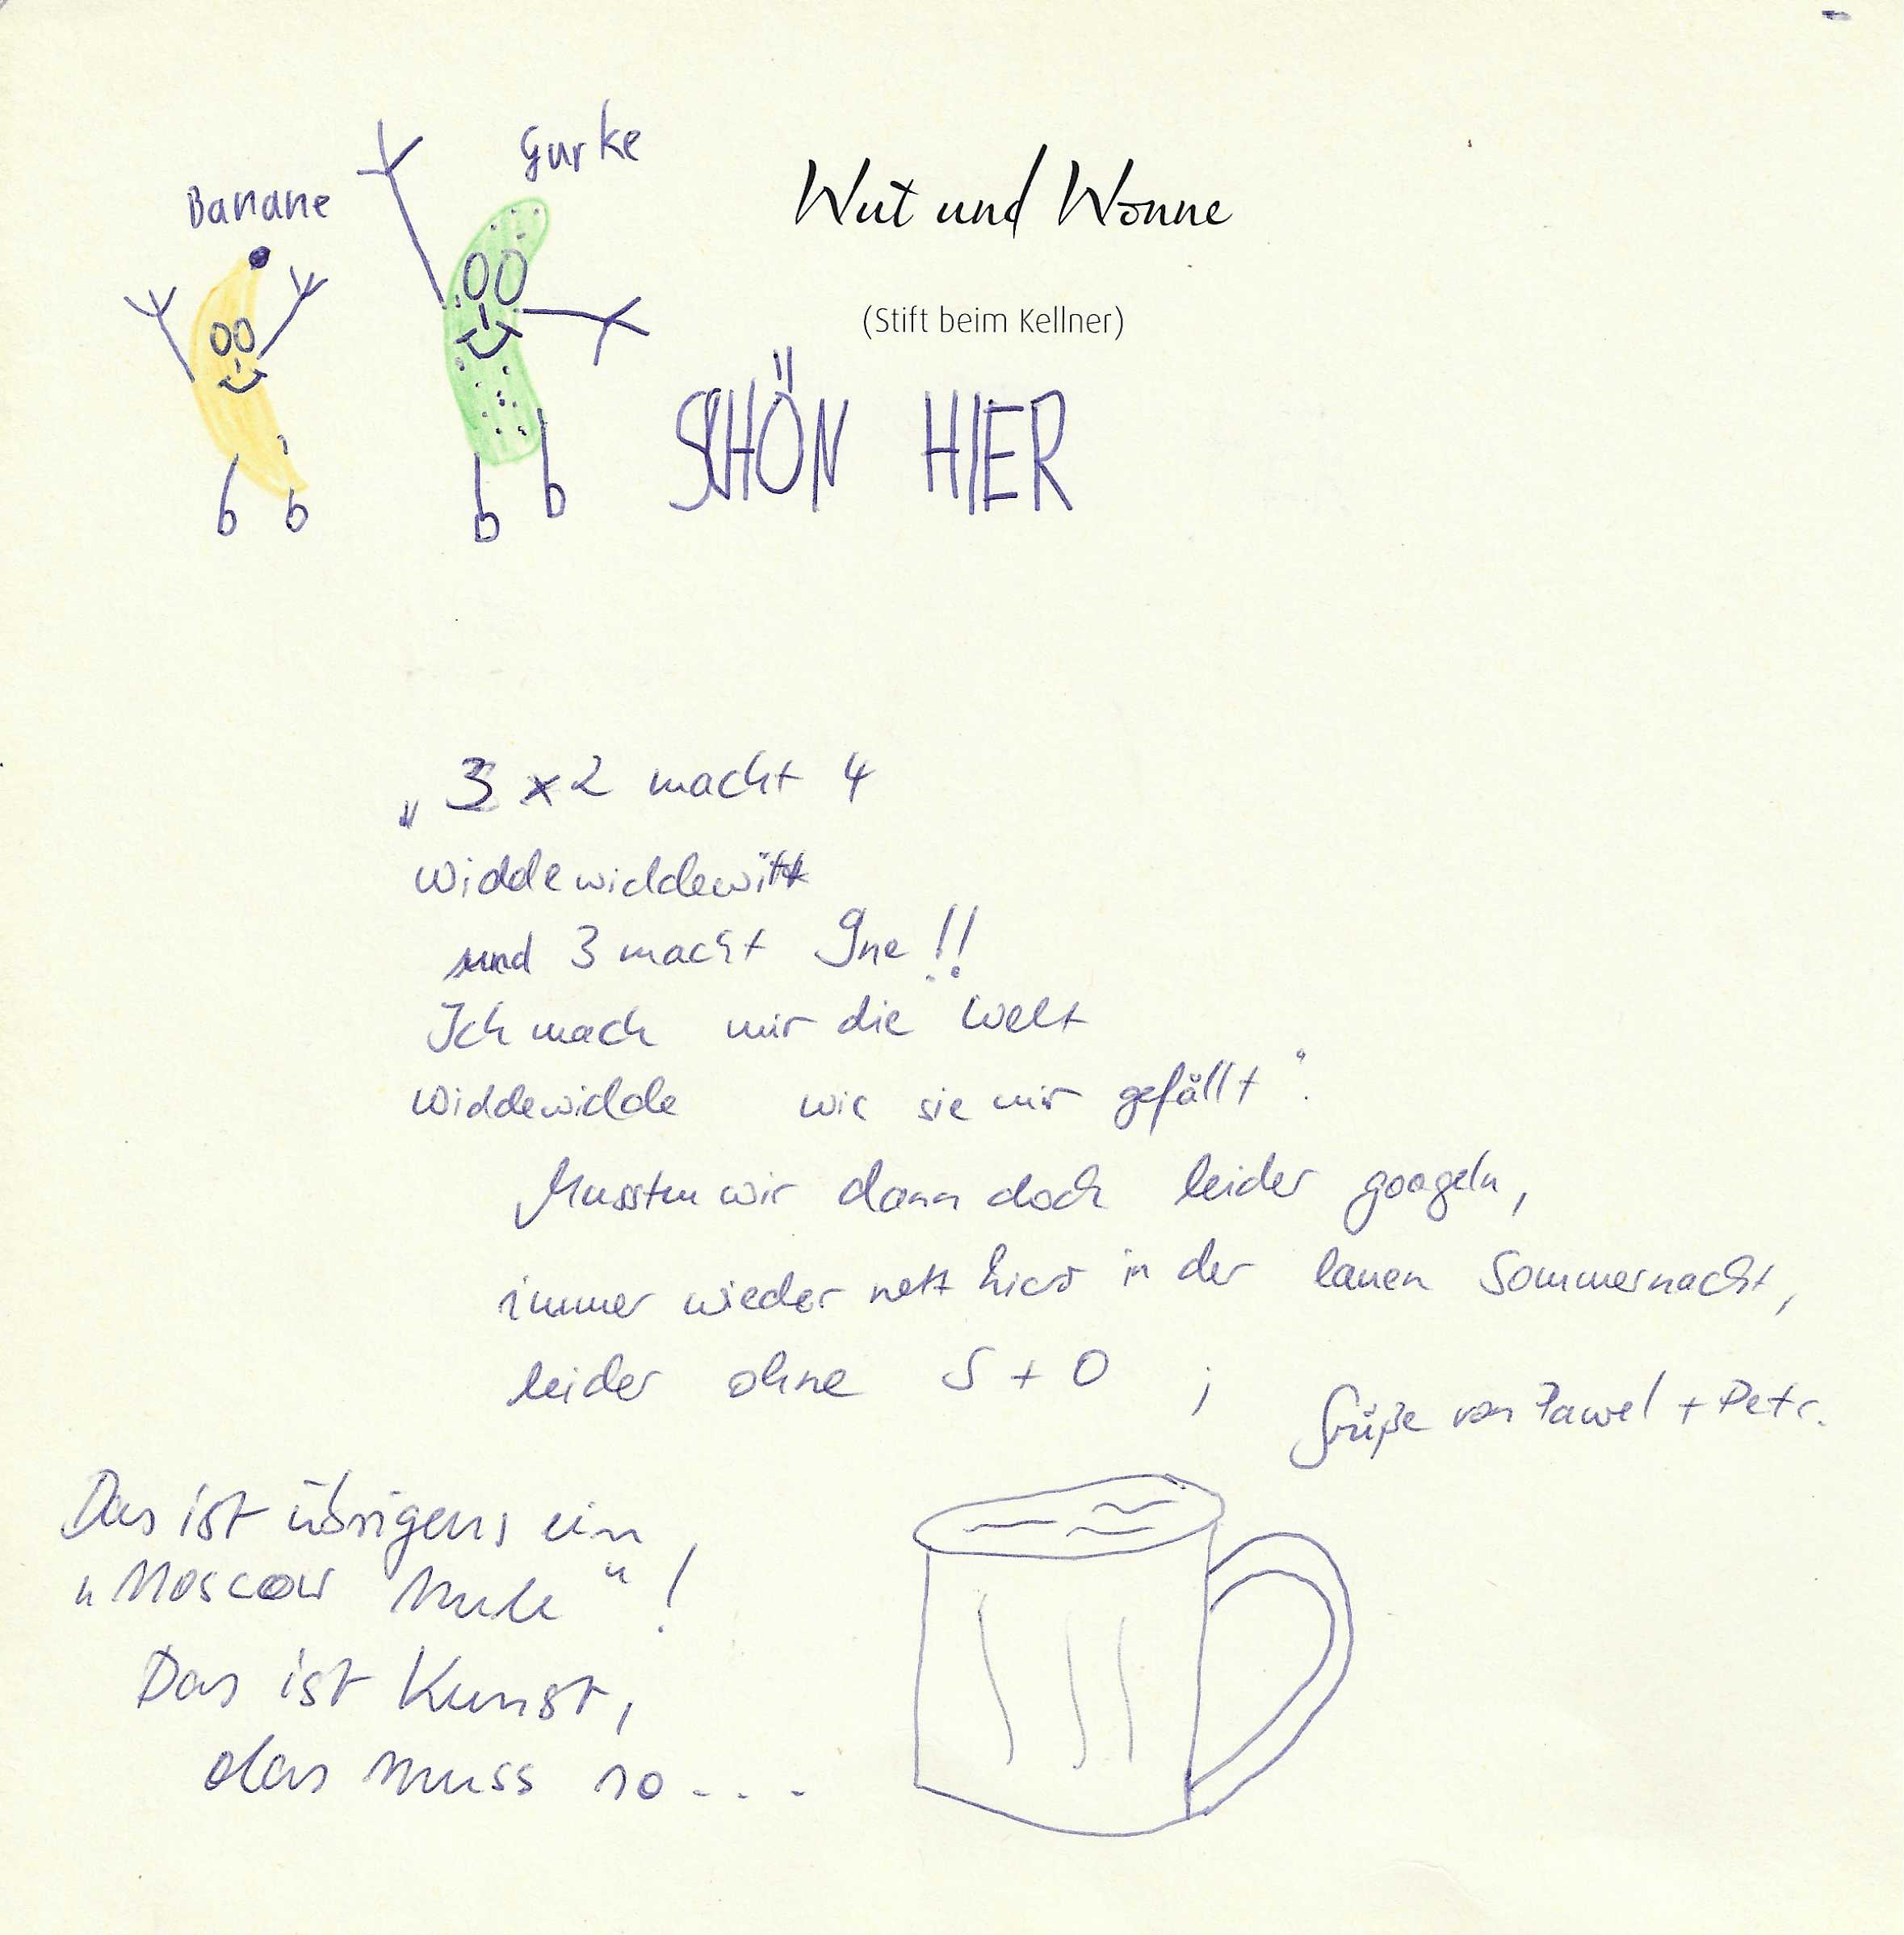 Banane
Gurke
Wut und Wonne
(Stift beim Kellner)
SCHÖN HIER
„3 x 2 macht 4
Widdewiddewitt
und 3 macht 9ne!!
Ich mach mir die Welt
Widdewidde wie sie mir gefällt".
Mussten wir dann doch leider googeln,
immer wieder nett hier in der lauen Sommernacht,
leider ohne S + O ;
Grüße von Pawel + Petr.
Das ist übrigens ein
„Moscow Mule"!
Das ist Kunst,
das muss so...